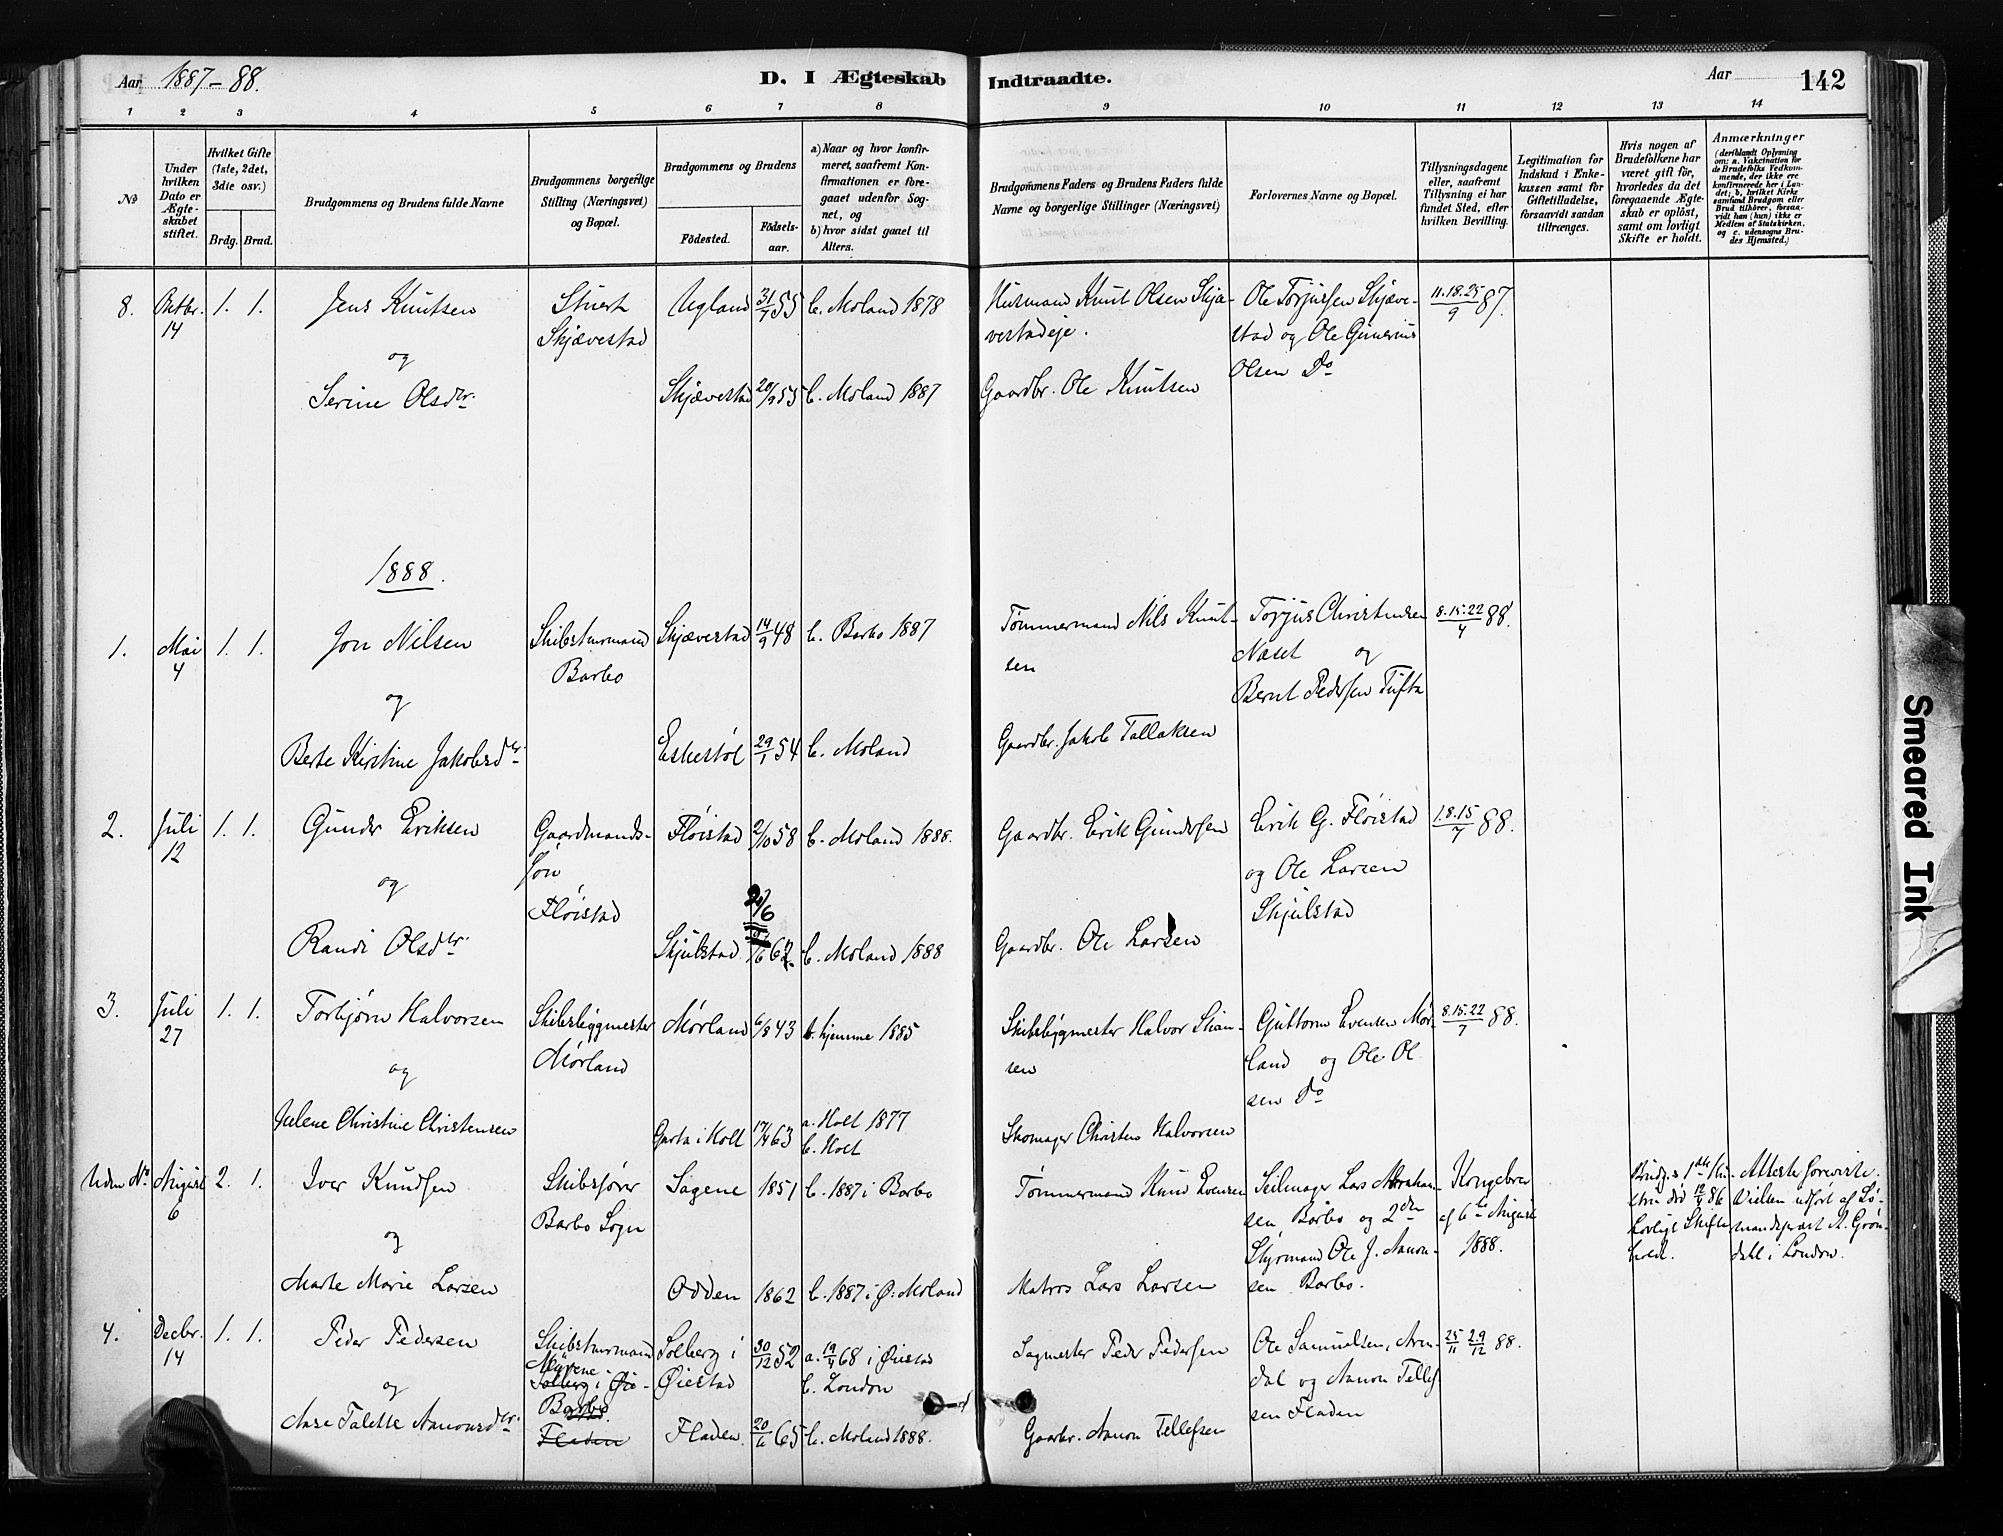 Aar 1887-88.
D. I Ægteskab Indtraadte.
Aar
142
1 2 3 4 5 6 7 8 9 10 11 12 13 14
No
Under hvilken Dato er Ægteskabet stiftet.
Hvilket Gifte (1ste, 2det, 3die osv.)
Brdg. Brud.
Brudgommens og Brudens fulde Navne
Brudgommens borgerlige Stilling (Næringsvei) og Bopæl.
Brudgommens og Brudens
Fødested.
Fødselsaar.
a) Naar og hvor konfirmeret, saafremt Konfirmationen er foregaaet udenfor Sognet, og
b) hvor sidst gaaet til Alters.
Brudgommens Faders og Brudens Faders fulde Navne og borgerlige Stillinger (Næringsvei)
Forlovernes Navne og Bopæl.
Tillysningsdagene eller, saafremt Tillysning ei har fundet Sted, efter hvilken Bevilling.
Legitimation for Indskud i Enkekassen samt for Giftetilladelse, forsaavidt saadan tiltrænges.
Hvis nogen af Brudefolkene har været gift før, hvorledes da det foregaaende Ægteskab er opløst, samt om lovligt Skifte er holdt.
Anmærkninger
(deriblandt Oplysning om: a. Vakcination for de Brudefolks Vedkommende, der ikke ere konfirmerede her i Landet; b. hvilket Kirkesamfund Brudgom eller Brud tilhører, forsaavidt han (hun) ikke er Medlem af Statskirken, og c. udensogns Brudes Hjemsted.)
8. Oktbr. 14 1. 1. Jens Knutsen
Stuert Skjævestad
Ugland 31/7 55 b. Moland 1878
Husmand Knut Olsen Skjævestadeje.
Ole Torjussen Skjævestad og Ole Gunerius Olsen Do
11.18.25/9 87.
og
Serine Olsdtr.
Skjævestad 20/9 55 b. Moland 1887
Gaardbr. Ole Knutsen
1888.
1. Mai 4 1. 1. Jon Nilsen
Skibsturmand Barbo
Skjævestad 14/9 48 b. Barbo 1887
Tømmermand Nils Knutsen
Torjus Christensen Næset og Bernt Pedersen Tufta
8.15.22/4 88.
og
Berte Kirstine Jakobsdtr.
Eskestøl 29/1 54 b. Moland
Gaardbr. Jakob Tallaksen
2. Juli 12 1. 1. Gunder Eriksen
Gaardmandssøn Fløistad
Fløistad 2/10 58 b. Moland 1888.
Gaardbr. Erik Gundersen
Erik G. Fløistad og Ole Larsen Skjulstad
1.8.15/7 88.
og
Randi Olsdtr.
Skjulstad 62 b. Moland 1888
Gaardbr. Ole Larsen
3. Juli 27 1. 1. Torbjørn Halvorsen
Skibsbygmester Mørland
Mørland 6/8 43 b. hjemme 1885
Skibsbygmester Halvor
Guttorm Evensen Mørland og Ole Olsen Do
8.15.22/7 88.
og
Julene Christine Christensen
Garta i Holt 17/4 63 a. Holt 1877 b. Holt
Skomager Christen Halvorsen
Uden No August 6 2. 1. Iver Knudsen
Skibsfører Barbo Sogn
Sagene 1851 b. 1887 i Barbo
Tømmermand Knud Evensen
Seilmager Lars Abrahamsen Barbo og 2den Styrmand Ole J. Aanonsen Barbo.
Kongebrev af 6te August 1888.
Brudg.s 1ste Hustru død 12/4 86 Lovligt Skifte hold.
Atteste foreviste. Vielsen udført af Sømandspræst A. Grøndahl i London.
og
Marte Marie Larsen
Odden 1862 b. 1887 i Ø. Moland
Matros Lars Larsen
4. Decbr. 14 1. 1. Peder Pedersen
Skibsturmand Myrene Solberg i Øie- Barbo. Fladen
Solberg i Øiestad 30/12 52 a. 19/4 68 i Øiestad b. London
Sagmester Peder Pedersen
Ole Samuelsen, Arendal og Aanon Tellefsen Fladen
25/11 2.9/12 88.
og
Aase Talette Aanonsdtr.
Fladen. 20/11 65 b. Moland 1888.
Gaarbr. Aanon Tellefsen
Smeared Ink